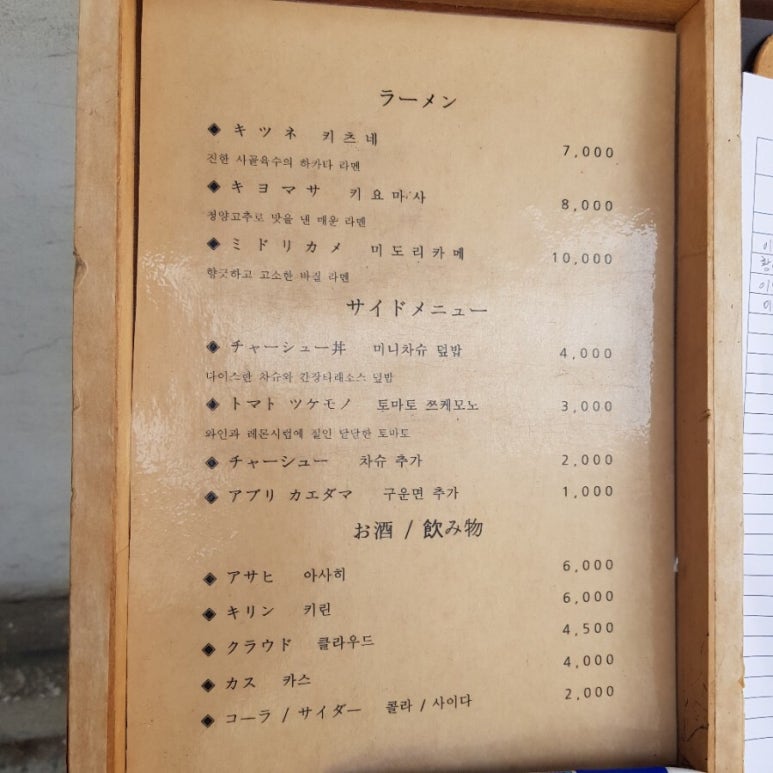 ラーメン
◈ キツネ 키츠네 7,000
진한 사골육수의 하카타 라멘
◈ キヨマサ 키요마사 8,000
청양고추로 맛을 낸 매운 라멘
◈ ミドリカメ 미도리카메 10,000
향긋하고 고소한 바질 라멘
サイドメニュー
◈ チャーシュー丼 미니차슈 덮밥 4,000
다이스한 차슈와 간장타래소스 덮밥
◈ トマト ツケモノ 토마토 쯔케모노 3,000
와인과 레몬시럽에 절인 달달한 토마토
◈ チャーシュー 차슈 추가 2,000
◈ アブリ カエダマ 구운면 추가 1,000
お酒 / 飲み物
◈ アサヒ 아사히 6,000
◈ キリン 키린 6,000
◈ クラウド 클라우드 4,500
◈ カス 카스 4,000
◈ コーラ / サイダー 콜라 / 사이다 2,000